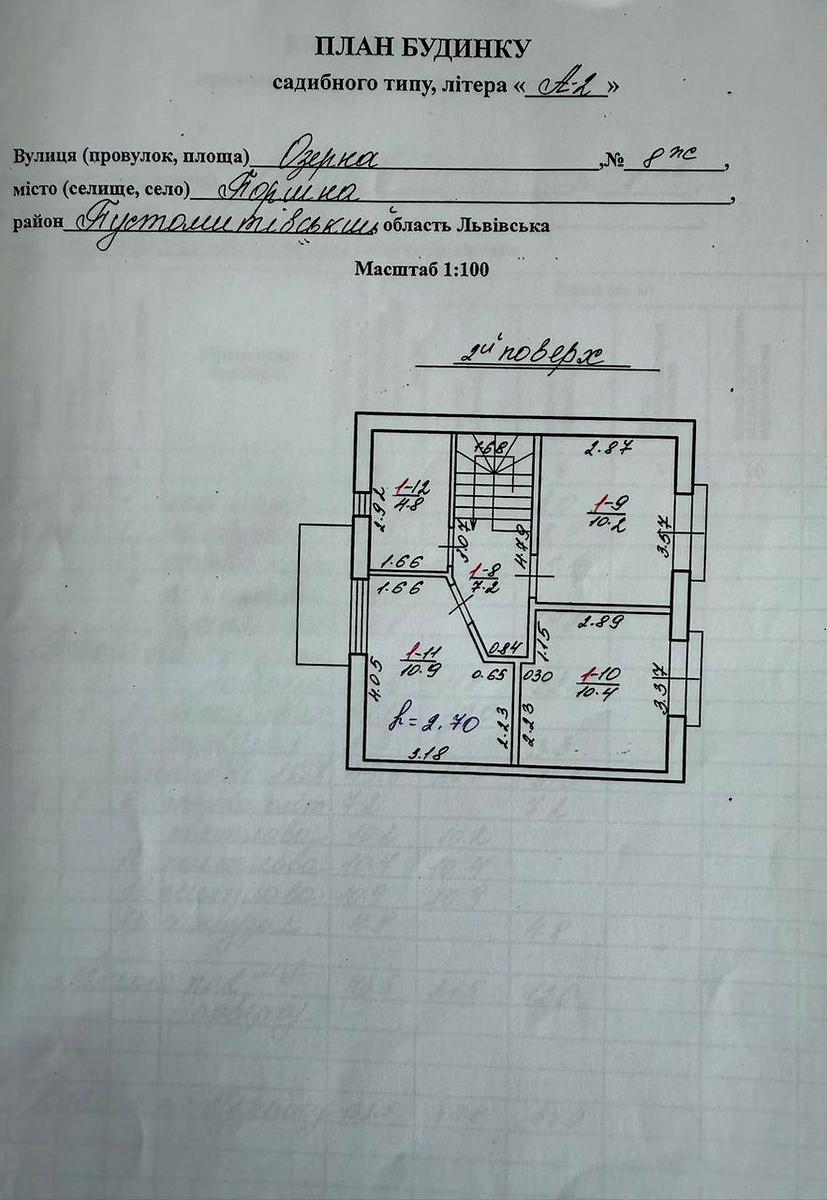 ПЛАН БУДИНКУ
садибного типу, літера « А-2 »
Вулиця (провулок, площа) Озерна ,№ 8ж ,
місто (селище, село) Поршна ,
район Пустомитівський область Львівська
Масштаб 1:100
2й поверх
1.68
2.87
1-12
4.8
2.92
1-9
10.2
3.57
3.07
4.79
1.66
1-8
7.2
1.66
2.89
0.84
1.15
1-11
10.9
4.05
0.65
0.30
1-10
10.4
3.37
h = 2.70
2.23
2.23
3.18